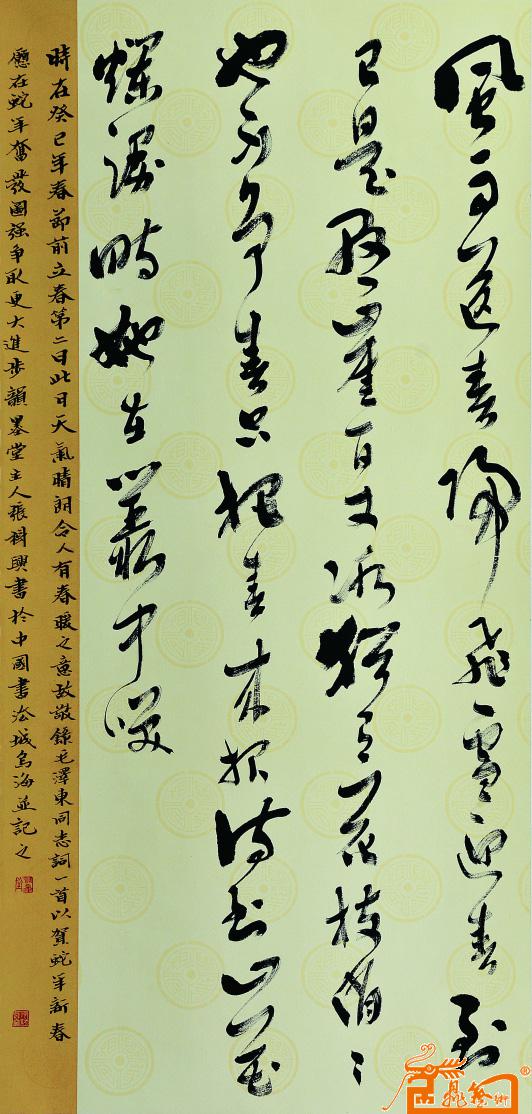 风雨送春归飞雪迎春到
已是悬崖百丈冰犹有花枝俏俏
也不争春只把春来报待到山花
烂漫时她在丛中笑
時在癸巳年春節前立春第二日此日天氣晴朗令人有春暖之意故敬錄毛澤東同志詞一首以賀蛇年新春
在蛇年奮發圖强争取更大進步韻墨堂主人張科興書於中國書法城烏海並記之